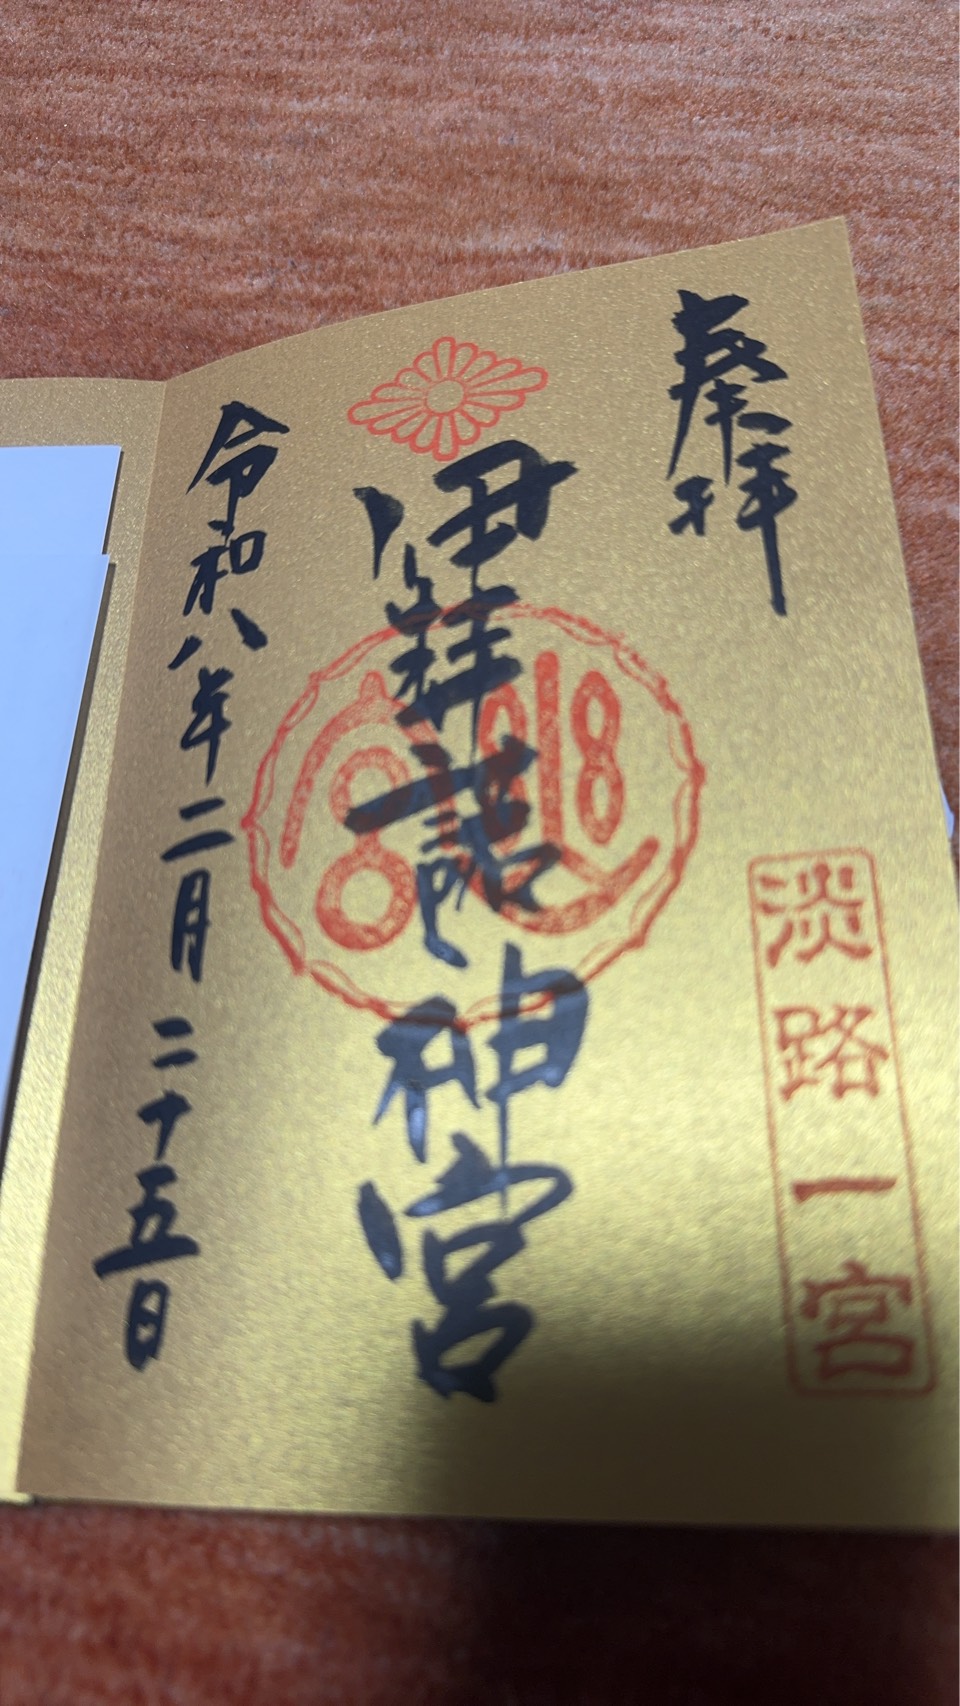 奉拝
淡路一宮
伊弉諾神宮
令和八年二月二十五日